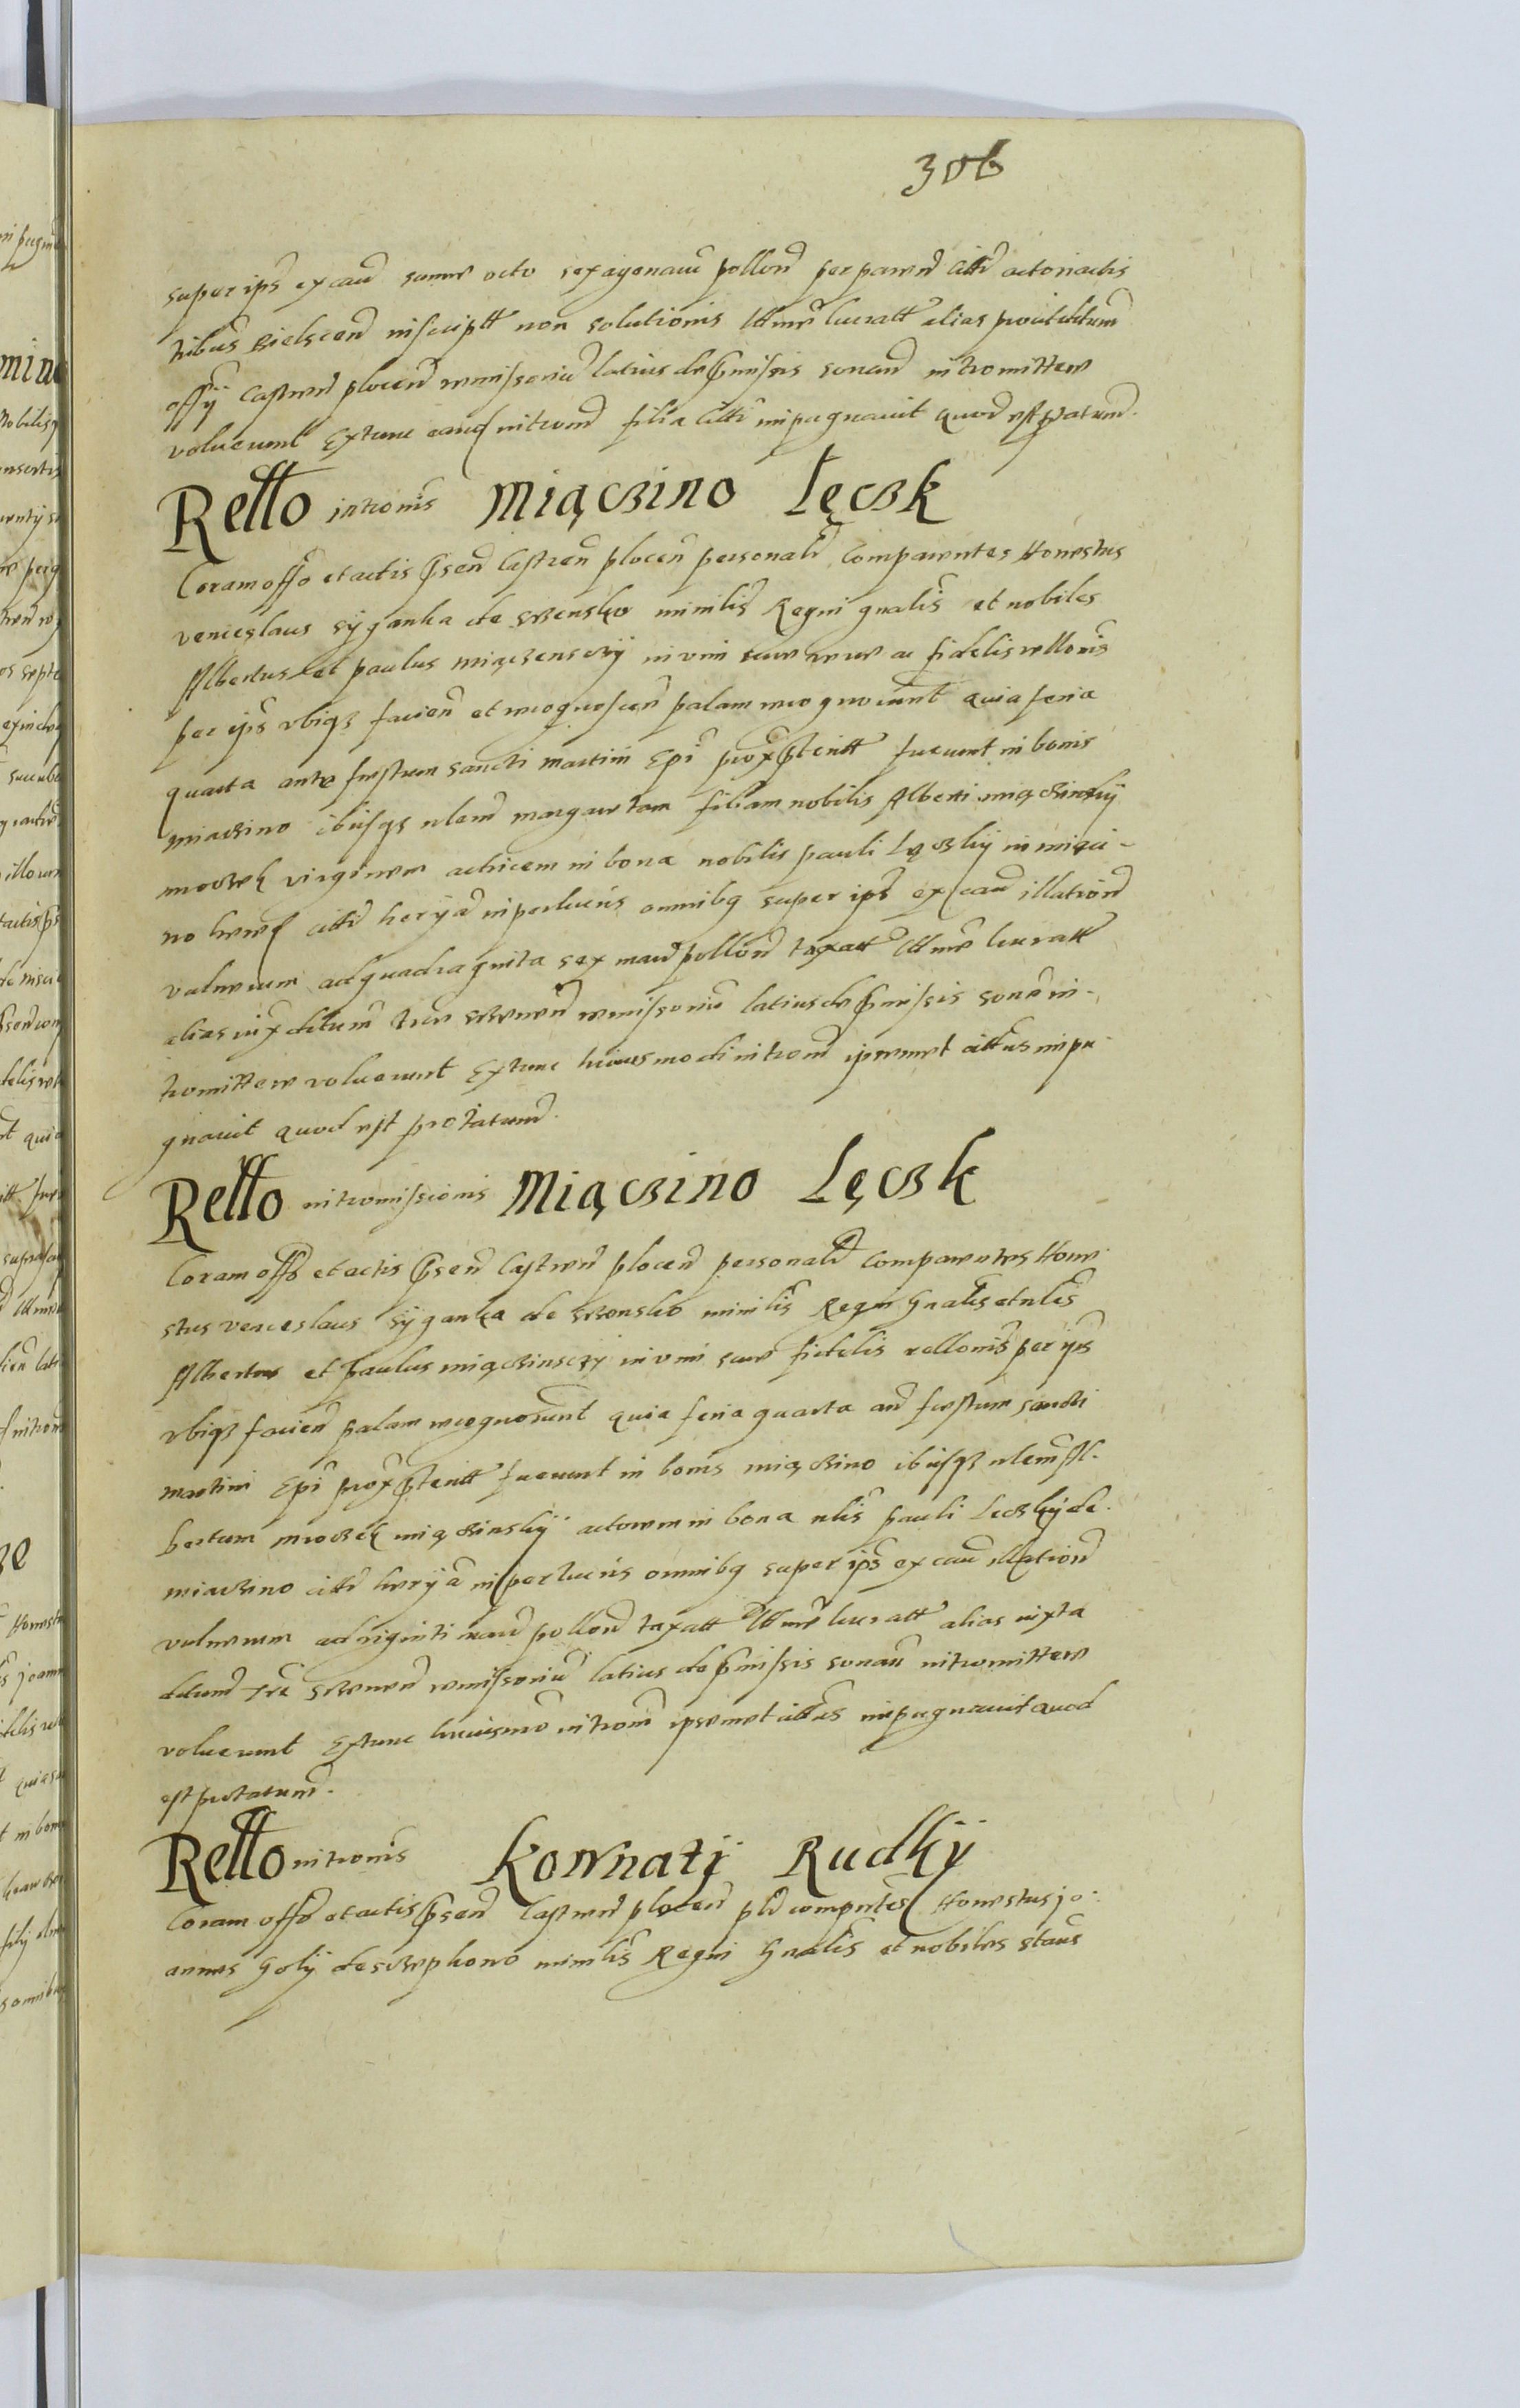 306
super ips ex cau summe octo sexagenaru pollon per paren citti actori actis
tribus Bielscen inscriptt non solutionis Itmre lucratt alias prout ddum
offy Castren plocen remissoriu latius de pmissis sonan intromittere
voluerunt Extunc eand introm filia citti impugnavit quod est ptatum.
Rello intromis Miączino Lęczk
Coram offo et actis psen Castren plocen personalr Comparentes Honestus
venceslaus Syganka de Srzensko minilis Regni gnalis et nobiles
Albertus et paulus miączensczy in vim vere ac fidelis rellonis
per ips vbiqз facien et recognoscen palam recognoverunt quia feria
quarta ante festum sancti martini Epi prox pteritt fuerunt in bonis
miaczino ibusqз nlem margaretam filiam nobilis Alberti miączinskij
mroczek virginem actricem in bona nobilis pauli Lęczkij in miązi-
no hered citti herya in perlucris omnibq super ips ex cau illation
vulnerum ad quadraginta sex marc pollon taxatt Itmre lucratt
alias iux ddtum tre Srzenen remissoriu latius de pmissis sonan in-
tromittere voluerunt Extunc huiusmodi introm ipsemet cittus impu-
gnavit quod est protatum.
Rello intromissionis Miączino Lęczk
Coram offo et actis psen Castren plocen personalr Comparentes Hone-
stus venceslaus Syganka de Srzensko minilis Regni Gnalis et nles
Albertus et Paulus miączinsczy in vim vere fidelis rellonis per ips
vbiqз facien palam recognorunt quia feria quarta an festum sancti
martini Epi prox pteritt fuerunt in bonis miączino ibusqз nlem Al-
bertum mroczek miączinskij actorem in bona nlis pauli Leczkij de
miaczino citti herya in perlucris omnibq super ips ex cau illation
vulnerum ad viginti marc pollon taxatt Itmre lucratt alias iuxta
ddtum tre Srzenen remissoriu latius de pmissis sonan intromittere
voluerunt Extunc huiusmo introm ipsemet cittus impugnavit quod
est protatum.
Rello intromis Kownatj Rudkij
Coram offo et actis psen Castren plocen plr compntes Honestus jo-
annes Goly de sczepkowo minilis Regni Gnalis et nobiles staus